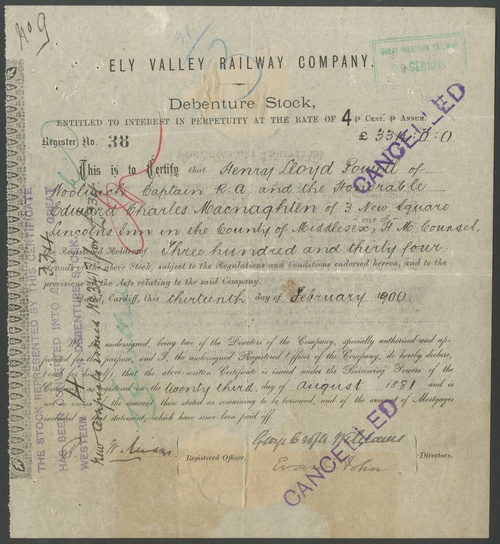 No 9
GREAT WESTERN RAILWAY
ELY VALLEY RAILWAY COMPANY.
Debenture Stock,
ENTITLED TO INTEREST IN PERPETUITY AT THE RATE OF 4 P CENT. P ANNUM.
Register No. 38 £ 334:0:0
CANCELLED
This is to Certify that Henry Lloyd Powell of
Woolwich Captain R.A. and the Honorable
Edward Charles Macnaghten of 3 New Square
Lincolns Inn in the County of Middlesex, one of H.M. Counsel,
Registered Holders of Three hundred and thirty four
Pounds of the above Stock, subject to the Regulations and Conditions endorsed hereon, and to the
provisions of the Acts relating to the said Company.
Cardiff, this thirteenth day of February 1900.
undersigned, being two of the Directors of the Company, specially authorised and appointed for
purpose, and I, the undersigned Registered Officer of the Company, do hereby declare,
that the above written Certificate is issued under the Borrowing Powers of the
Company registered on the twenty third day of August 1881 and is
not in excess of the amount there stated as remaining to be borrowed, and of the amount of Mortgages
included in statement, which have since been paid off.
Registered Officer.
Directors.
CANCELLED
THE STOCK REPRESENTED BY THIS CERTIFICATE
HAS BEEN CONVERTED INTO £ 334 GREAT
WESTERN 4 DEBENTURE STOCK.